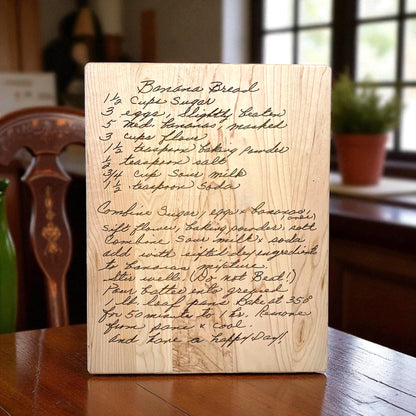 Banana Bread
1½ Cups Sugar
3 eggs, slightly beaten
5 med. bananas, mashed
3 cups flour
1½ teaspoon baking powder
½ teaspoon salt
¾ cup sour milk
1½ teaspoon Soda
Combine Sugar, eggs & bananas,
Sift flour, baking powder, salt
Combine sour milk & soda
add with sifted dry ingredients
to bananas mixture.
Stir well (Do not Beat!)
Pour batter into greased
1 lb loaf pans Bake at 350
for 50 minute to 1 hr. Remove
from pans & cool.
And have a happy Day!